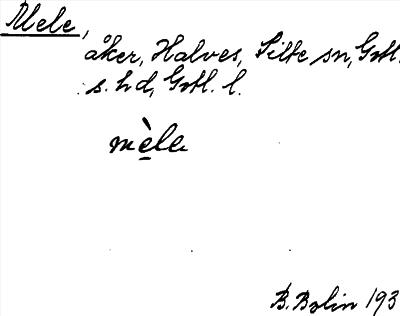 Mele,
åker, Halves, Silte sn, Gotl.
s. hd, Gotl. l.
mè̱le
B. Bolin 193